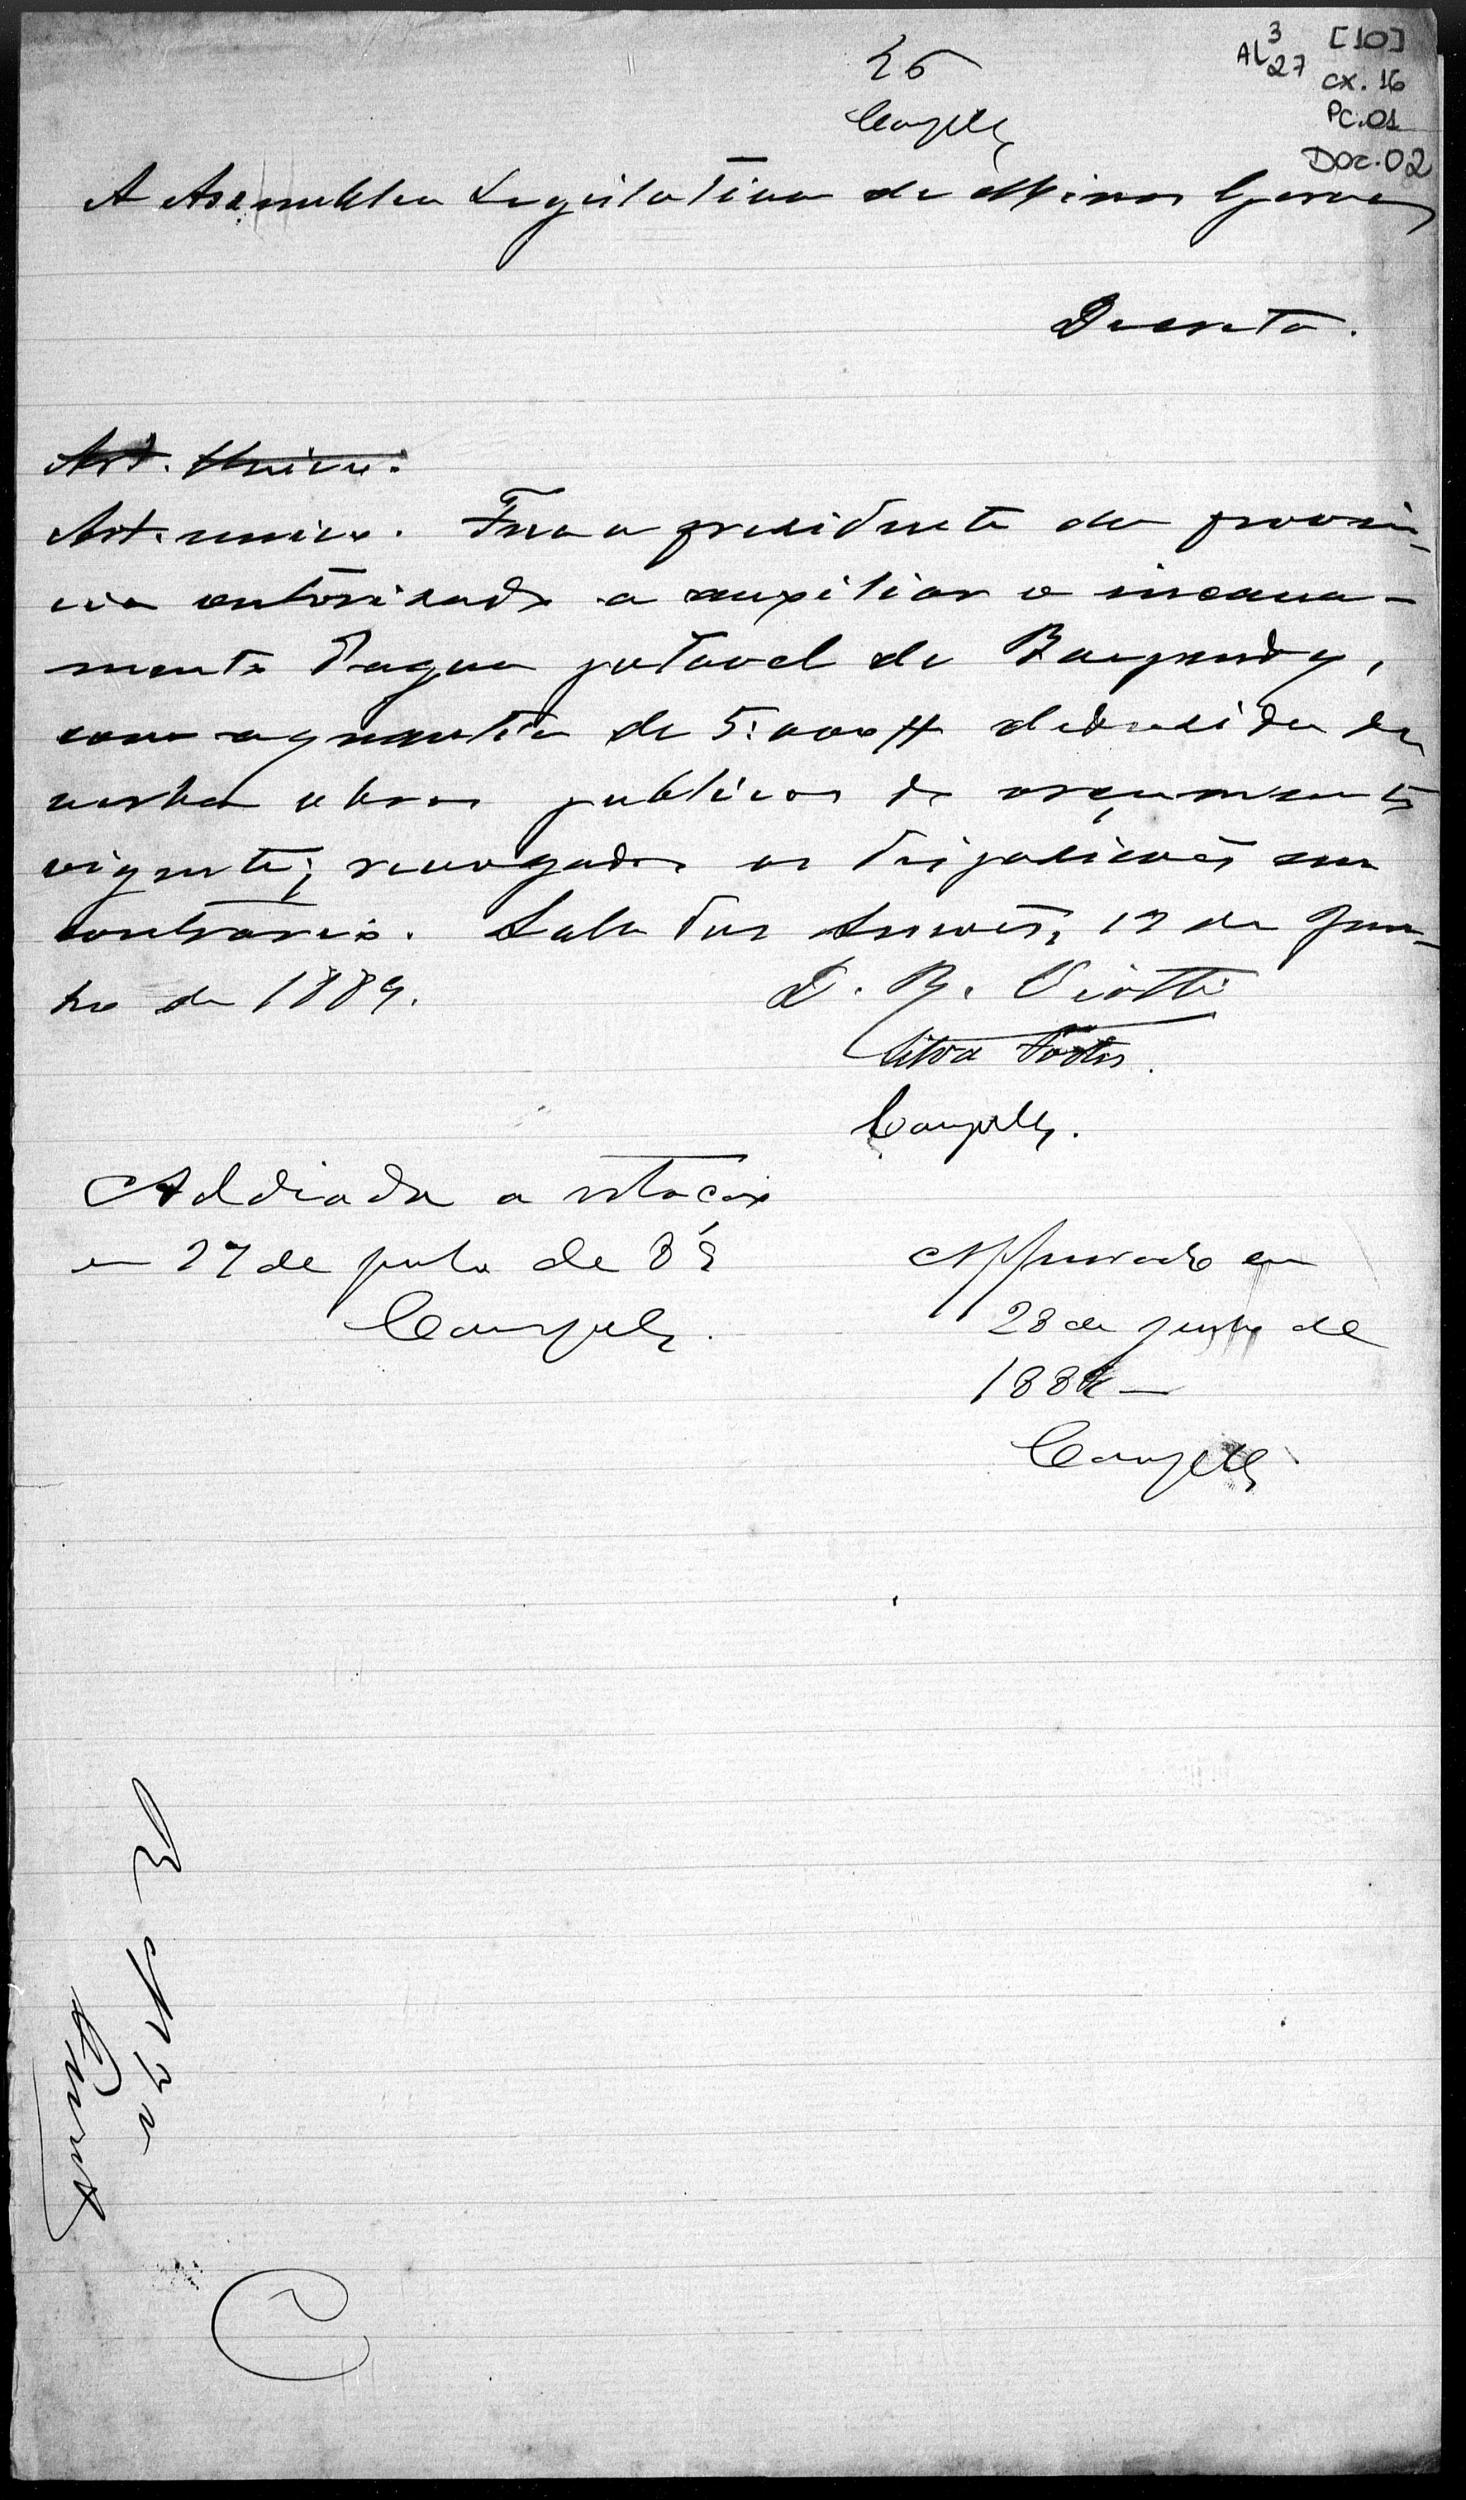 AL 3 27
[10]
cx. 16
PC.01
Doc.02
A Assemblea Legislativa de Minas Geraes
Decreta.
Art. Unico.
Art. unico. Fica o presidente da provin-
cia autorisado a auxiliar o incana-
mento d'agua potavel de Baependy,
com a quantia de 5:000$ deduzida da
verba obras publicas do orçamento
vigente; revogadas as disposicões em
contrario. Sala das Sessões, 17 de Ju-
nho de 1889.
D. R. Viotti
Silva Fortes.
Campello.
Addiada a votação
em 27 de junho de 89
Campello.
Approvado em
28 de junho de
1889 —
Campello